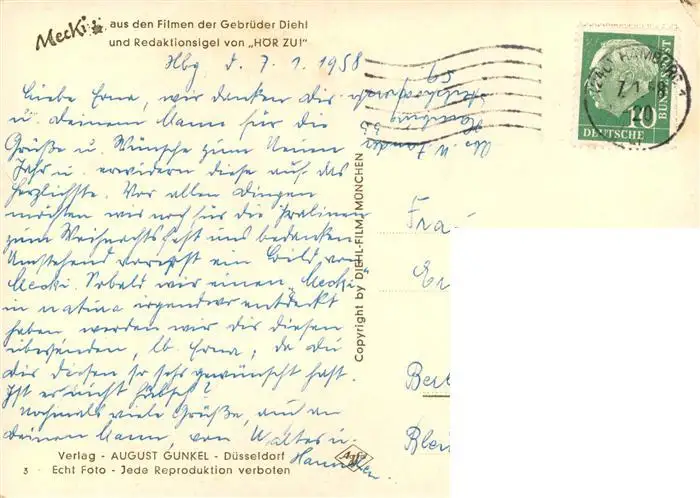 Mecki
aus den Filmen der Gebrüder Diehl
und Redaktionsigel von „HÖR ZU!"
Hbg d. 7. 1. 1958
Liebe Erna, wir danken dir
u. Deinem Mann für die
Grüße u. Wünsche zum Neuen
Jahr u. erwidern diese auf das
herzlichste. Vor allen Dingen
möchten wir noch für die Pralinen
zum Weihnachtsfest uns bedanken
Umstehend vorerst ein Bild von
Mecki. Sobald wir einen „Mecki"
in natura irgendwo entdeckt
haben werden wir dir diesen
übersenden, lb. Erna, da du
dir diesen so sehr gewünscht hast.
Ist er nicht hübsch?
Nochmals viele Grüße, auch an
deinen Mann, von Walter u.
Hannchen.
Verlag - AUGUST GUNKEL - Düsseldorf
3 Echt Foto - Jede Reproduktion verboten
Agfa
Copyright by DIEHL-FILM, MÜNCHEN
Hamburg
HAMBURG 1
7. 1. 58
20
DEUTSCHE
BUNDESPOST